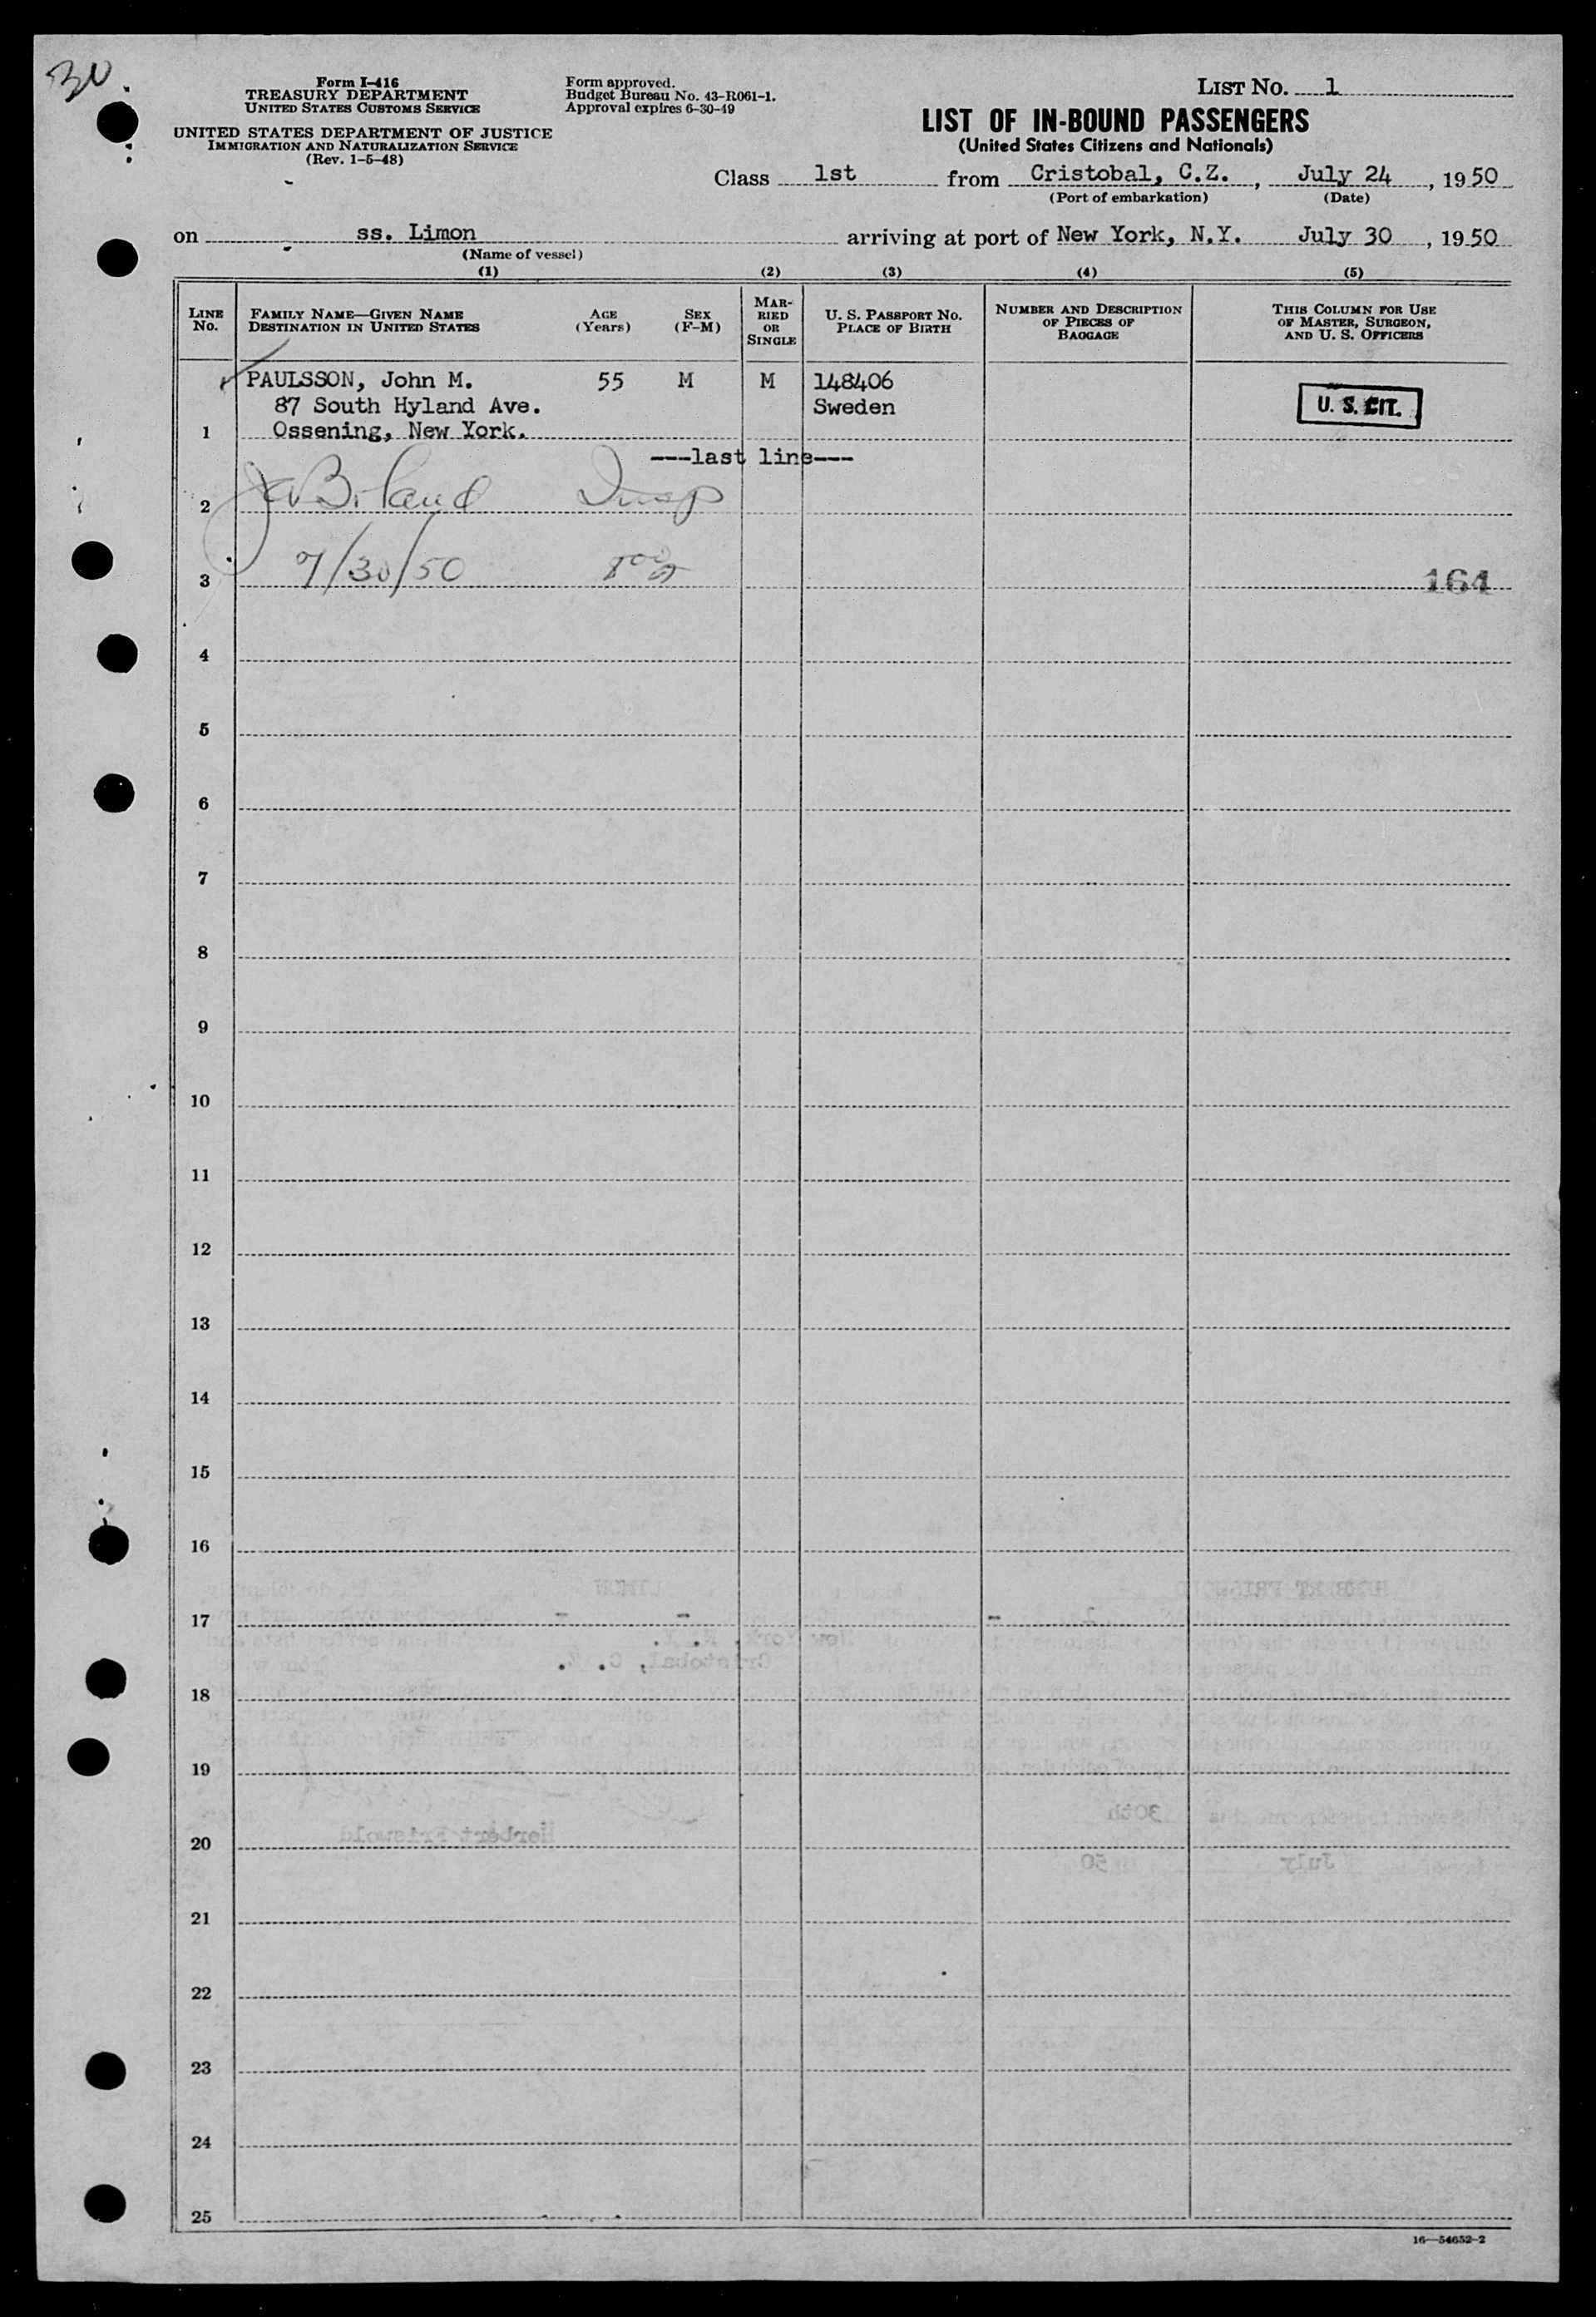 30
Form I-416
TREASURY DEPARTMENT
UNITED STATES CUSTOMS SERVICE
UNITED STATES DEPARTMENT OF JUSTICE
IMMIGRATION AND NATURALIZATION SERVICE
(Rev. 1-5-48)
Form approved.
Budget Bureau No. 43-R061-1.
Approval expires 6-30-49
LIST No. 1
LIST OF IN-BOUND PASSENGERS
(United States Citizens and Nationals)
Class 1st from Cristobal, C.Z., July 24, 1950
(Port of embarkation) (Date)
on ss. Limon arriving at port of New York, N.Y. July 30, 1950
(Name of vessel)
(1) (2) (3) (4) (5)
LINE No.
FAMILY NAME—GIVEN NAME
DESTINATION IN UNITED STATES
AGE (Years)
SEX (F-M)
MARRIED OR SINGLE
U. S. PASSPORT No.
PLACE OF BIRTH
NUMBER AND DESCRIPTION OF PIECES OF BAGGAGE
THIS COLUMN FOR USE OF MASTER, SURGEON, AND U. S. OFFICERS
PAULSSON, John M. 55 M M 148406
87 South Hyland Ave. Sweden U. S. CIT.
1 Ossening, New York.
---last line---
2 Insp
3 7/30/50 164
4
5
6
7
8
9
10
11
12
13
14
15
16
17
18
19
20
21
22
23
24
25
16—54652-2